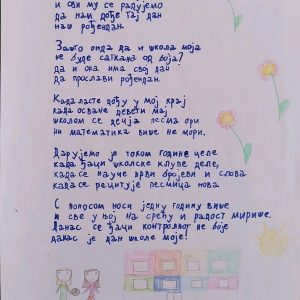 и сви му се радујемо
да нам дође тај дан
наш рођендан.
Зашто онда да и школа моја
не буде саткана од боја?
да и она има свој дан
да прослави рођендан.
Када ласте дођу у мој крај
када осване девети мај
школом се дечја песма ори
ни математика више не мори.
Дарујемо је током године целе
када ђаци школске клупе деле,
када се науче први бројеви и слова
када се рецитује песмица нова.
С поносом носи једну годину више
и све у њој на срећу и радост мирише.
Данас се ђаци контролног не боје
данас је дан школе моје!